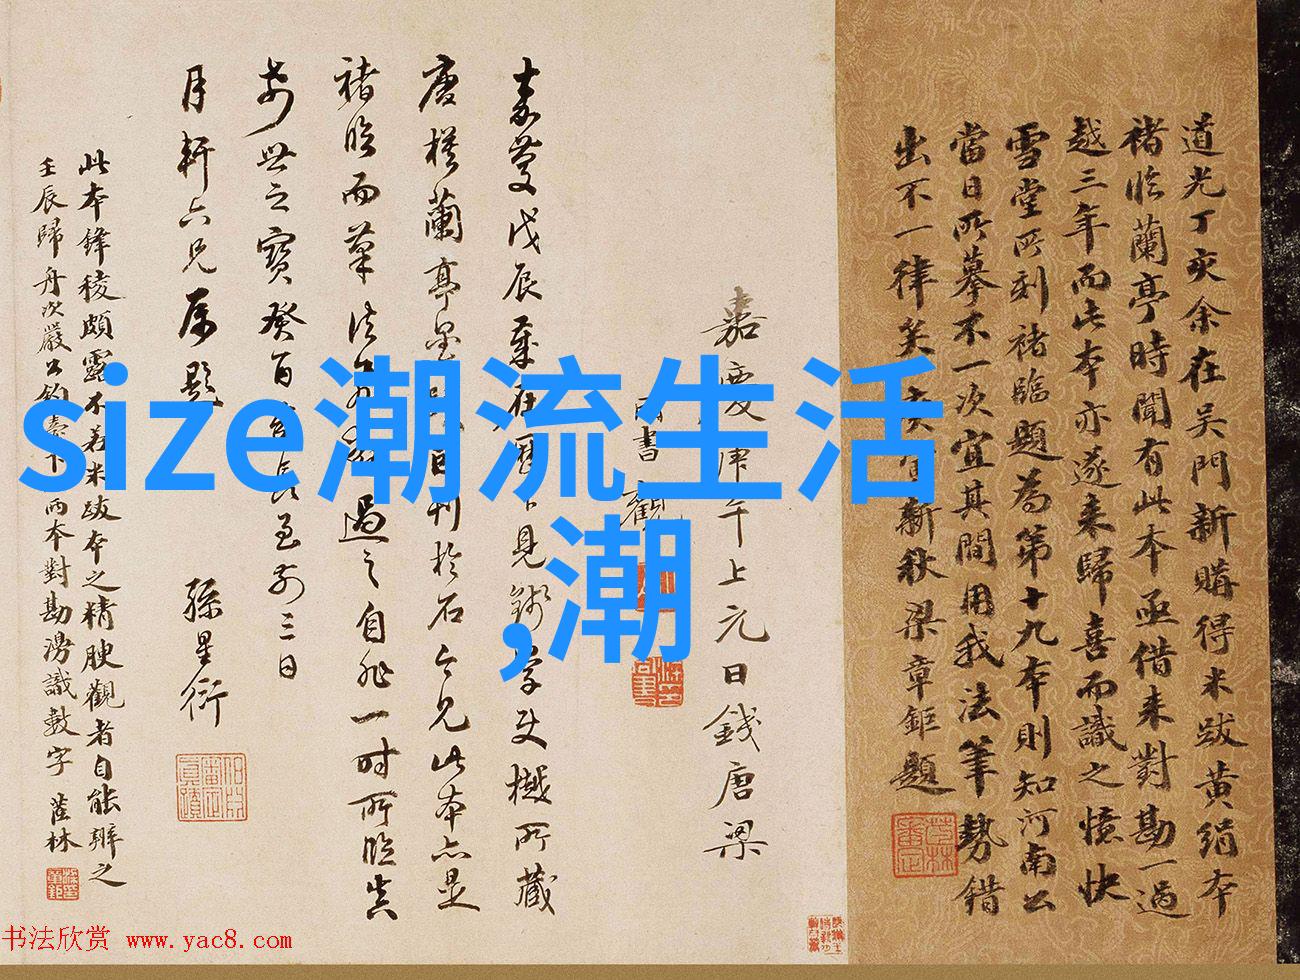 size潮流生活
,潮
道光丁亥余在吴門新購得米跋黄絹本
褚临蘭亭時聞有此本亟借来對勘一過
越三年而此本亦遂来歸喜而識之憶快
雪堂所刻褚臨題為第十九本則知河南公
當日所摹不一次宜其間用我法筆勢錯
出不一律矣新秋梁章鉅題
嘉慶午上元日錢唐梁
書觀
嘉慶戊辰見所藏
唐模蘭亭刊於石今見此本亦是
褚临而筆法過之自非一時所临真
世之寶癸酉三日
月軒六兄属題 孫星衍
此本鋒稜頗露不若米跋本之精腴觀者自能辨之
壬辰歸舟次嚴公釣臺下两本對勘漫識數字 茝林
书法欣赏 www.yac8.com